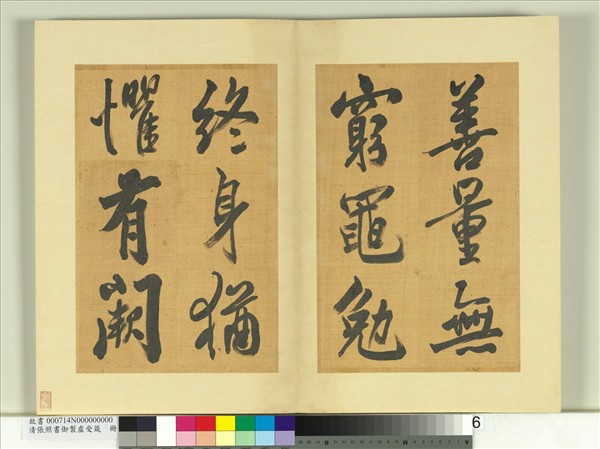 善量無
窮黽勉
終身猶
懼有闕
故書 000714N000000000
清張照書御製虛受箴 冊
6